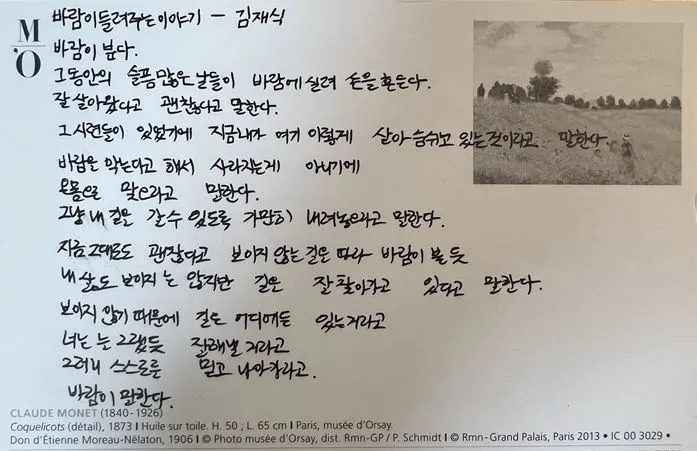 M
'O
바람이 들려주는 이야기 - 김재식
바람이 분다.
그동안의 슬픔 많은 날들이 바람에 실려 손을 흔든다.
잘 살아왔다고 괜찮다고 말한다.
그 시련들이 있었기에 지금 내가 여기 이렇게 살아 숨쉬고 있는 것이라고 말한다.
바람은 막는다고 해서 사라지는게 아니기에
온몸으로 맞으라고 말한다.
그냥 내 길을 갈 수 있도록 가만히 내려놓으라고 말한다.
지금 그대로도 괜찮다고 보이지 않는 길을 따라 바람이 불 듯
내 삶도 보이지 는 않지만 길을 잘 찾아가고 있다고 말한다.
보이지 않기 때문에 길은 어디에든 있는거라고
너는 늘 그랬듯 잘해낼 거라고
그러니 스스로를 믿고 나아가라고.
바람이 말한다.
CLAUDE MONET (1840-1926)
Coquelicots (détail), 1873 I Huile sur toile. H. 50 ; L. 65 cm I Paris, musée d'Orsay.
Don d'Étienne Moreau-Nélaton, 1906 I © Photo musée d'Orsay, dist. Rmn-GP / P. Schmidt I © Rmn-Grand Palais, Paris 2013 • IC 00 3029 •